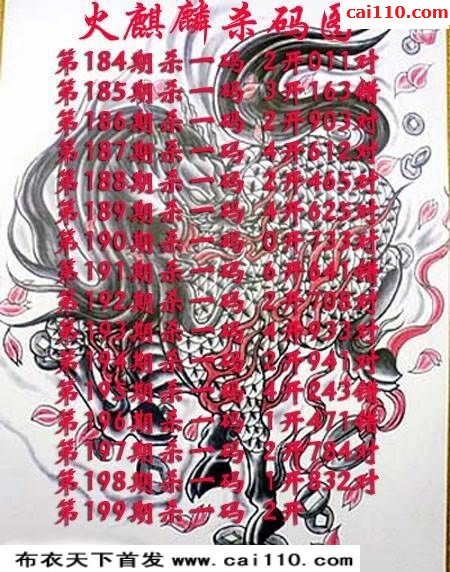 cai110.com
火麒麟杀码图
第184期杀一码 2开011对
第185期杀一码 3开163错
第186期杀一码 2开903对
第187期杀一码 4开612对
第188期杀一码 2开465对
第189期杀一码 4开625对
第190期杀一码 0开733对
第191期杀一码 6开641错
第192期杀一码 2开708对
第193期杀一码 4开933对
第194期杀一码 2开941对
第195期杀一码 4开243错
第196期杀一码 1开471错
第197期杀一码 2开784对
第198期杀一码 1开832对
第199期杀一码 2开
布衣天下首发 www.cai110.com